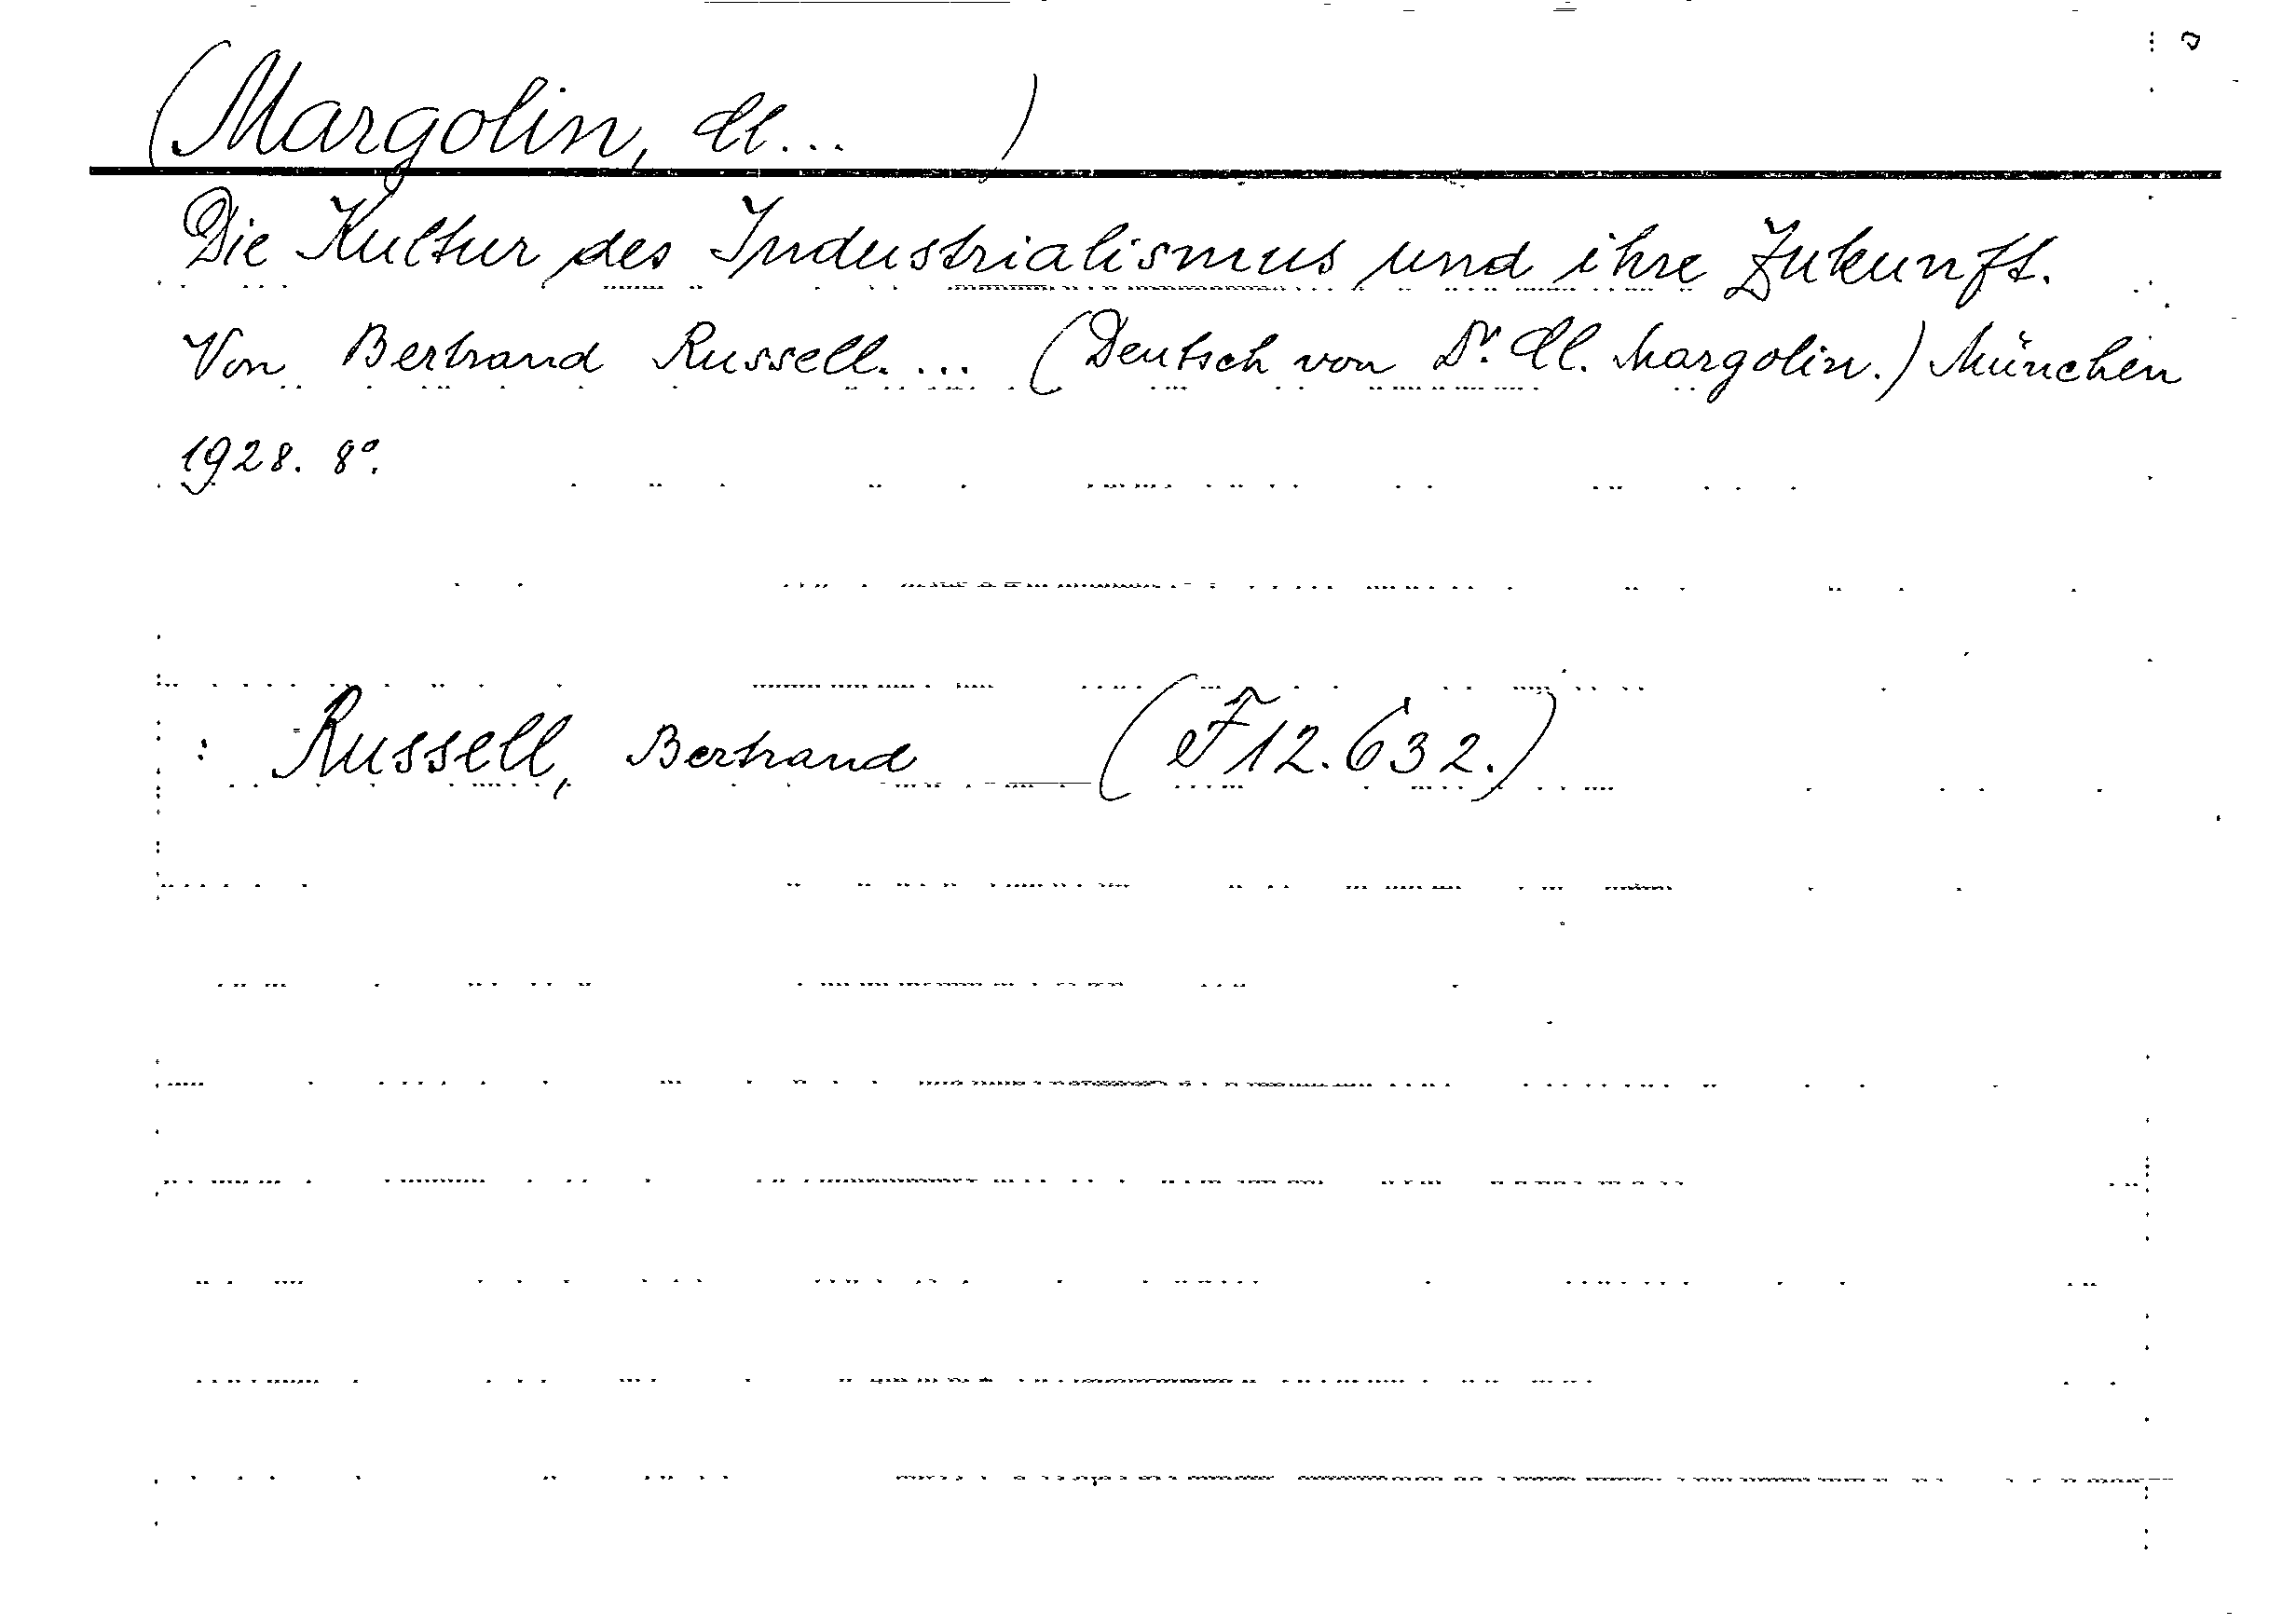 (Margolin, Cl... )
Die Kultur des Industrialismus und ihre Zukunft.
Von Bertrand Russell. ... (Deutsch von Dr. Cl. Margolin.) München
1928. 8°.
: Russell, Bertrand (F 12.632.)